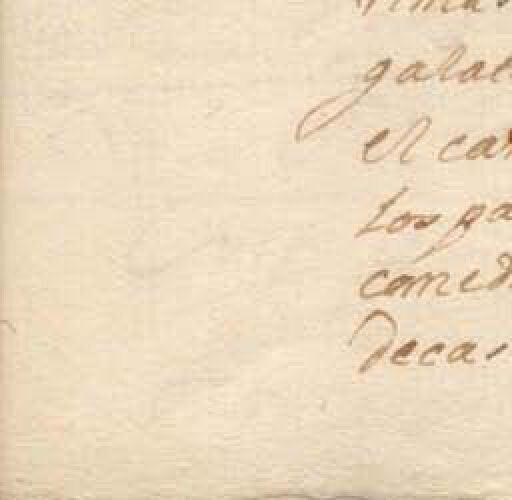 galal
el car
los pa
comed
decas